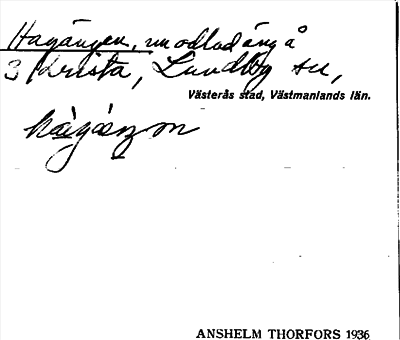 Hagängen, uppodlad äng å
3 Krista, Lundby sn,
Västerås stad, Västmanlands län.
hàgáŋən
ANSHELM THORFORS 1936